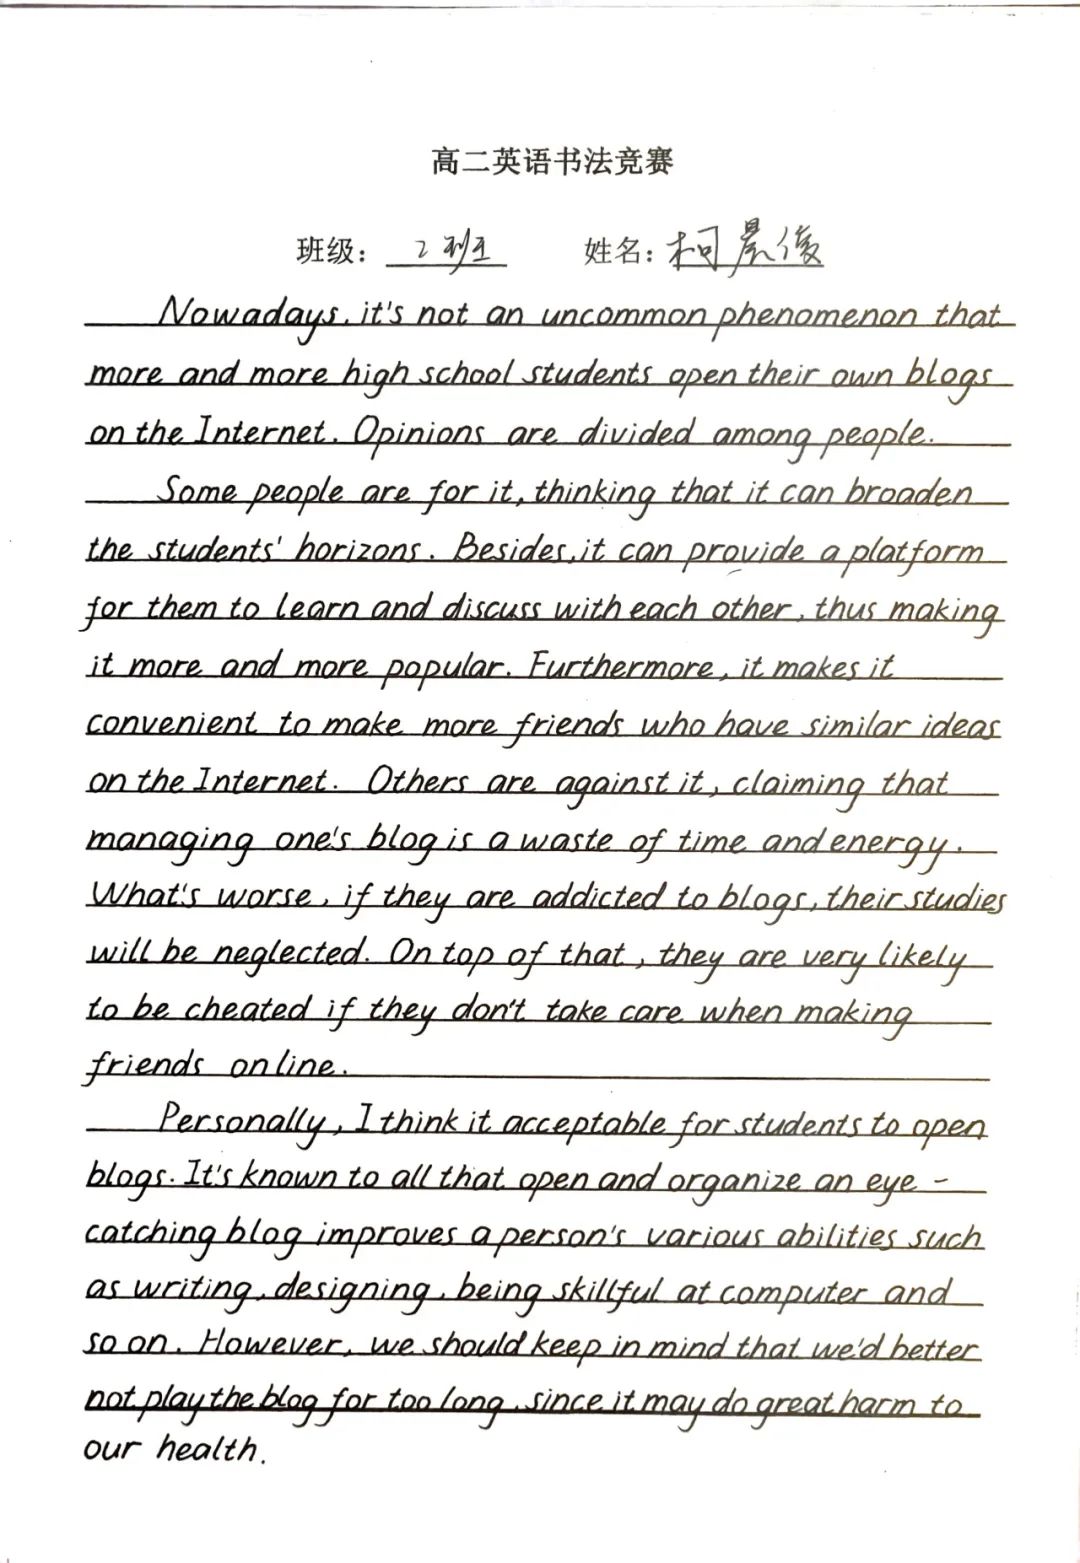 高二英语书法竞赛
班级： 2班 姓名：柯晨俊
Nowadays, it's not an uncommon phenomenon that
more and more high school students open their own blogs
on the Internet. Opinions are divided among people.
Some people are for it, thinking that it can broaden
the students' horizons. Besides, it can provide a platform
for them to learn and discuss with each other, thus making
it more and more popular. Furthermore, it makes it
convenient to make more friends who have similar ideas
on the Internet. Others are against it, claiming that
managing one's blog is a waste of time and energy.
What's worse, if they are addicted to blogs, their studies
will be neglected. On top of that, they are very likely
to be cheated if they don't take care when making
friends online.
Personally, I think it acceptable for students to open
blogs. It's known to all that open and organize an eye-
catching blog improves a person's various abilities such
as writing, designing, being skillful at computer and
so on. However, we should keep in mind that we'd better
not play the blog for too long, since it may do great harm to
our health.